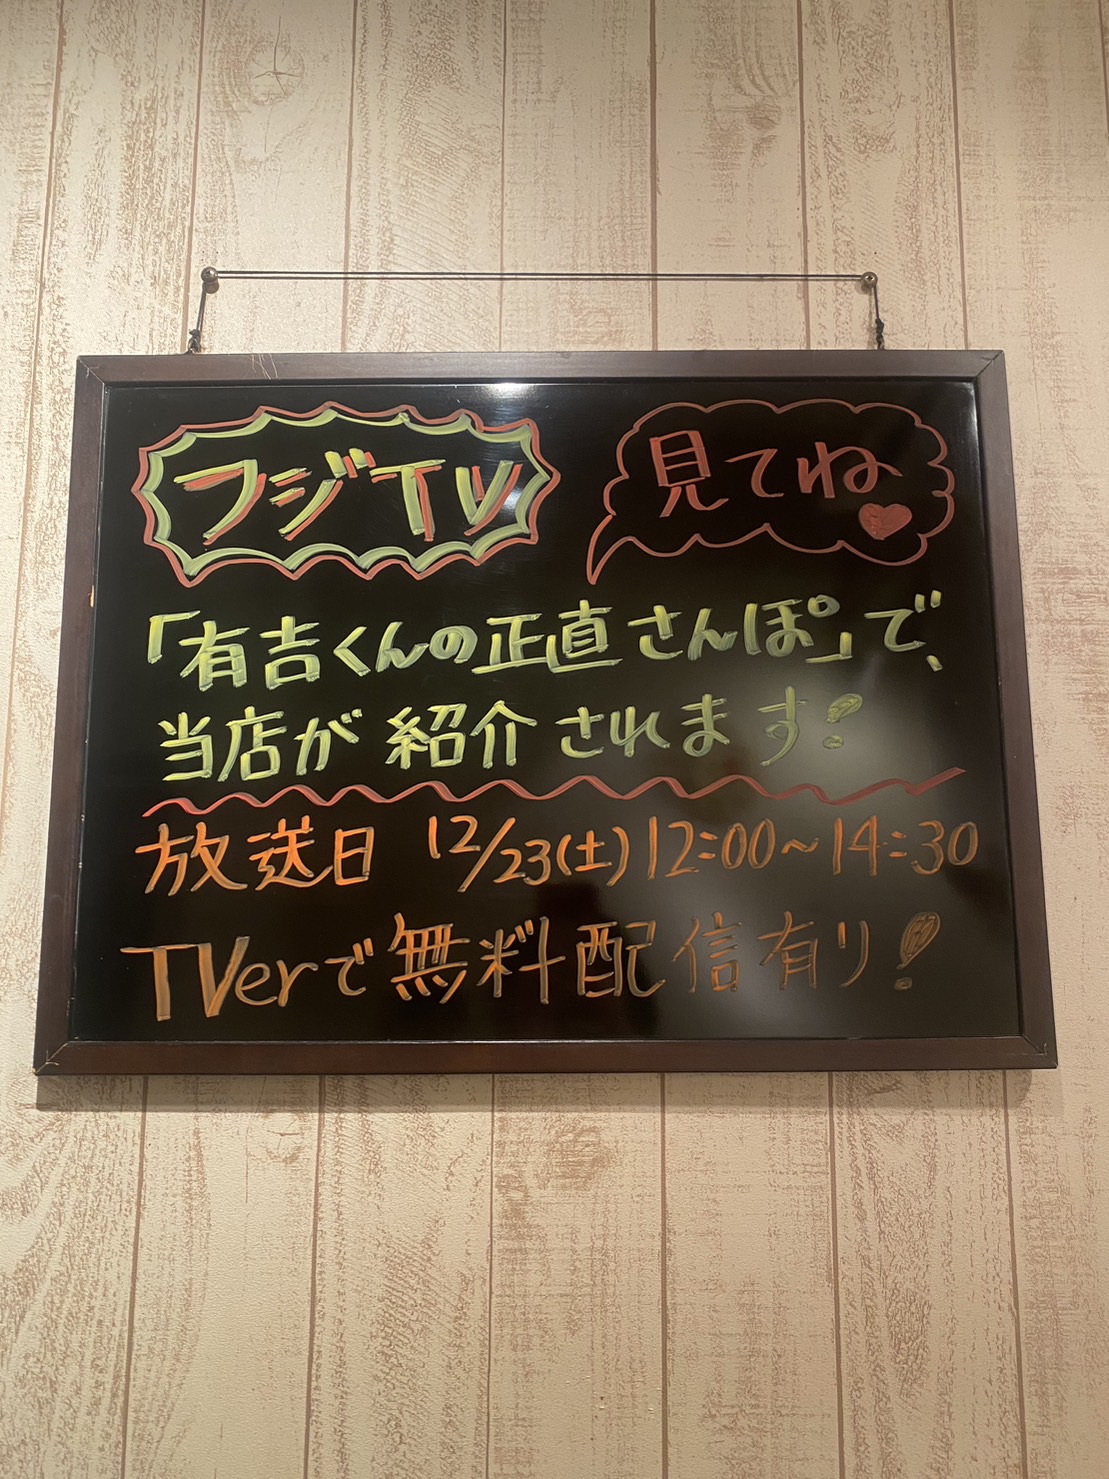 フジTV
見てね
「有吉くんの正直さんぽ」で、
当店が紹介されます!
放送日 12/23(土) 12:00~14:30
TVerで無料配信有り!